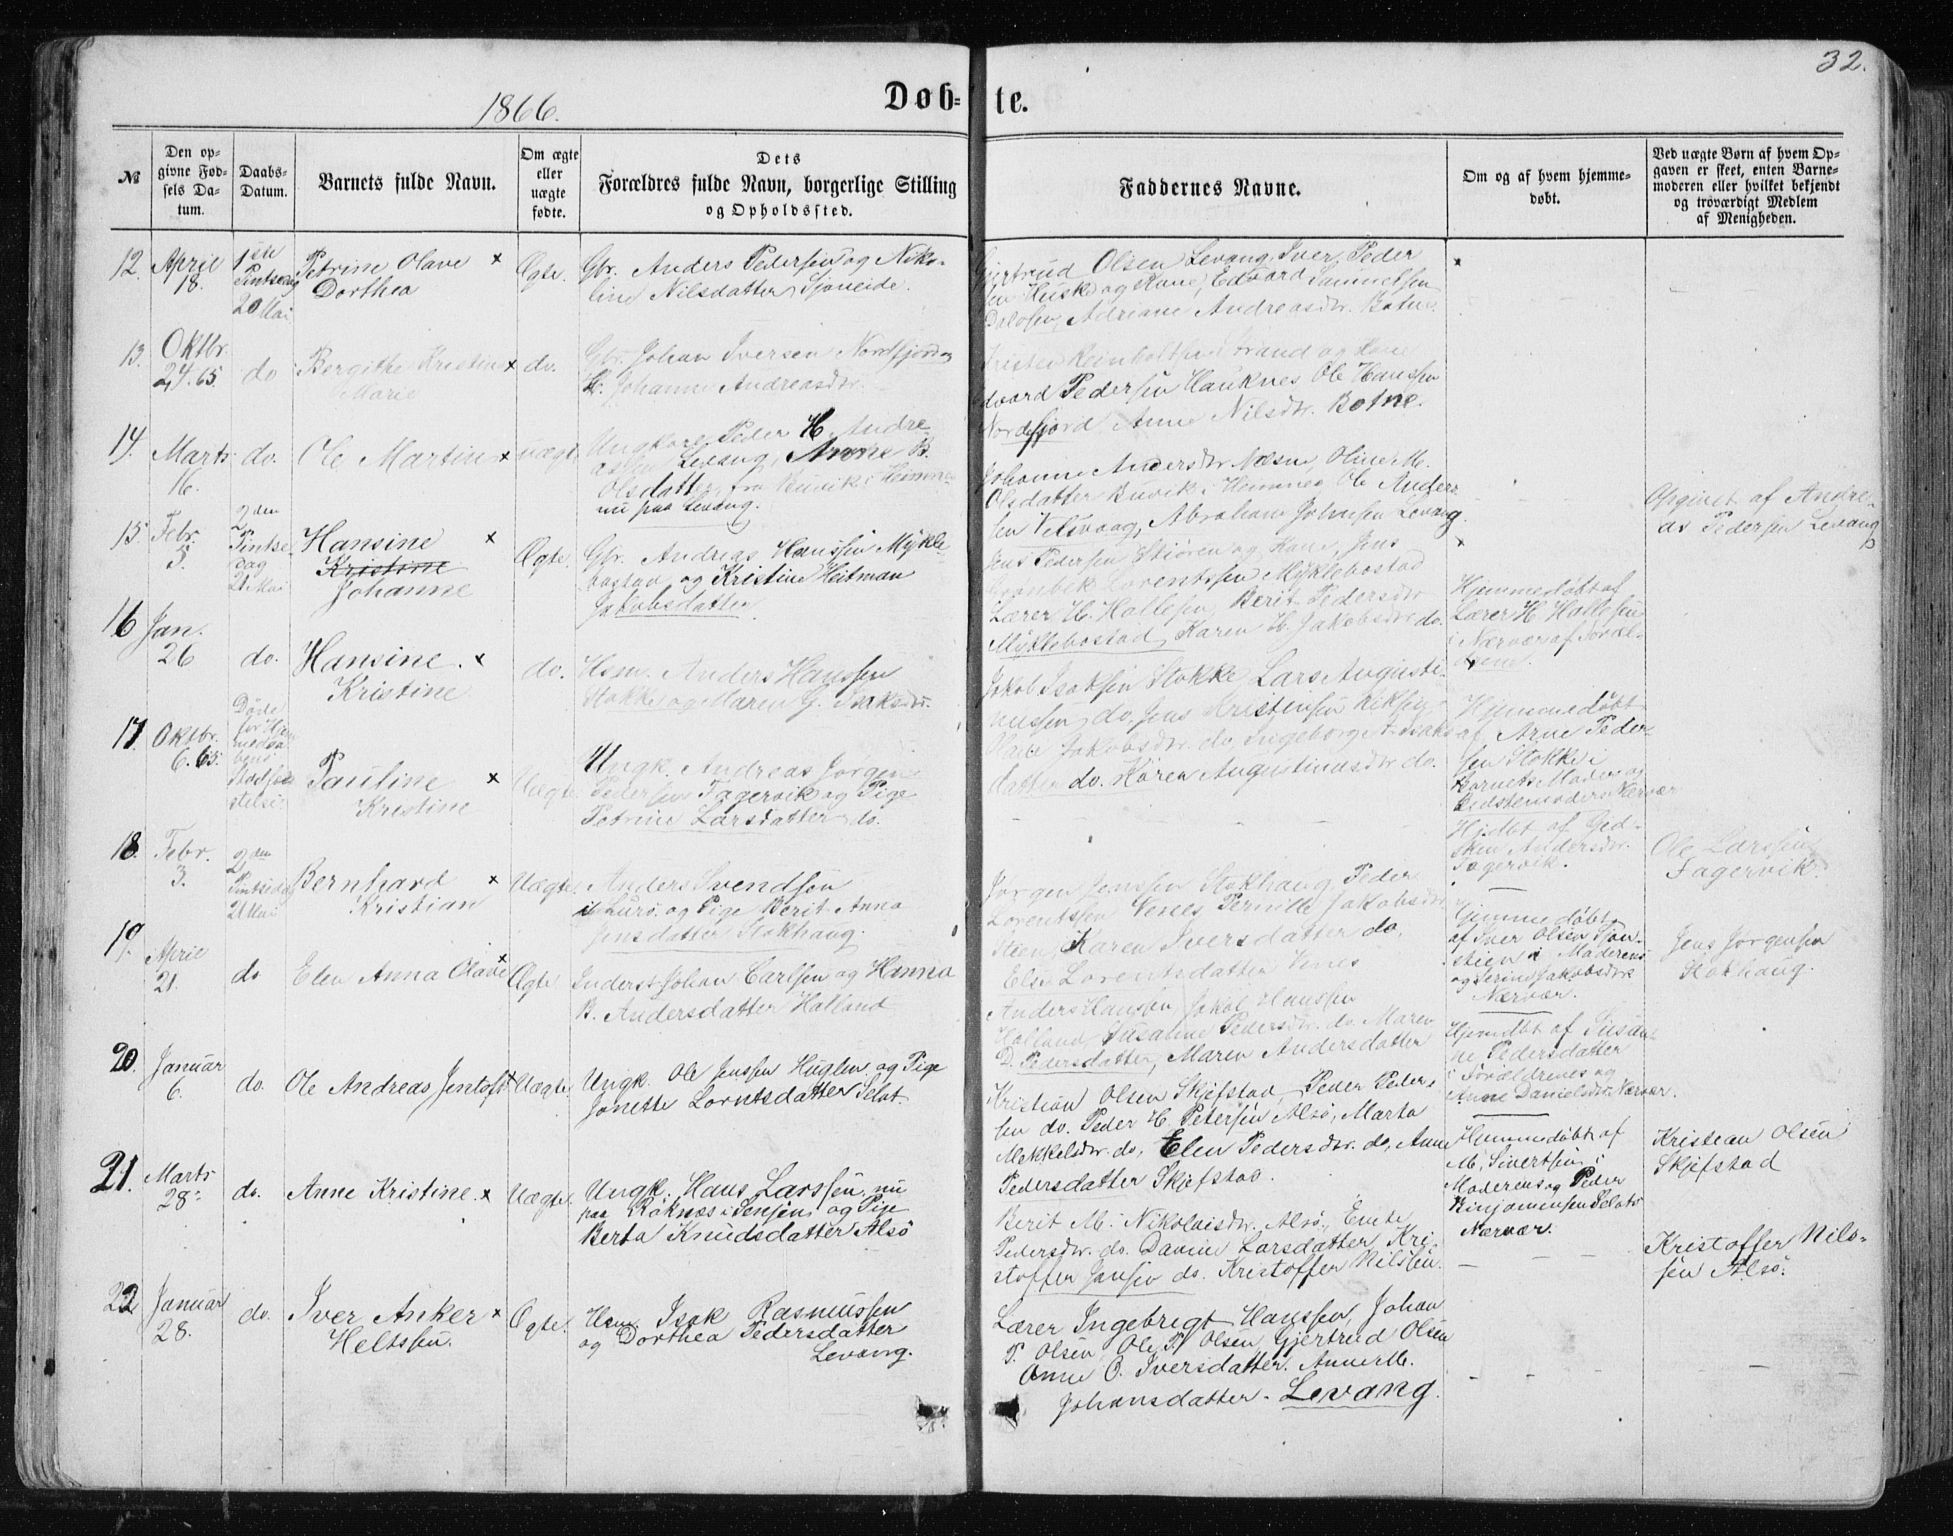 32.
1866.
Døb-
te.
№
Den op-
givne Fød-
sels Da-
tum.
Daabs-
Datum.
Barnets fulde Navn.
Om ægte
eller
uægte
fødte.
Dets
Forældres fulde Navn, borgerlige Stilling
og Opholdssted.
Faddernes Navne.
Om og af hvem hjemme-
døbt.
Ved uægte Børn af hvem Op-
gaven er skeet, enten Barne-
moderen eller hvilket bekjendt
og troværdigt Medlem
af Menigheden.
12. April
18.
1ste
Pintsedag
20 Mai
Petrine Olave x
Dorthea
Ægte.
Gbr. Anders Pedersen og Niko-
line Nilsdatter Sjoneide.
Gjertrud Olsen Levang, Iver Peder
sen Husk og Kone, Edvard Samuelsen
Adriane Andreasdr. Botne.
13. Oktbr.
24. 65.
do
Bergithe Kristine x
Marie
do.
Gbr. Johan Iversen Nordfjord og
H. Johanna Andreasdr.
Strand og Kone
Edvard Pedersen Hauknes Ole Hanssen
Nordfjord Anne Nilsdr. Botne.
14. Marts
16.
do.
Ole Martin x
uægte
Ungkare Peder H. Andre-
assen Levang, Anne B.
Olsdatter fra Buvik i Hemnes
nu paa Levang.
Johanna Andersdr Næsne, Oline M.
Olsdatter Buvik i Hemnes Ole Anders
sen Vetsvaag, Abraham Johnsen Levang.
Opgivet af Andre-
as Pedersen Levang
15 Febr.
5.
2den
Pintse-
dag
21 Mai
Hansine x
Kristine
Johanne
Ægte.
Gbr. Andreas Hanssen Mykle-
bostad og Kristine Heitman
Jakobsdatter.
Jens Pedersen Skiøren og Kone, Jens
Lorentssen Myklebostad
Lærer H. Hallesen, Berit Pedersdr
Myklebostad, Karen H. Jakobsdr do.
Hjemmedøbt af
Lærer H. Hallesen
i Nærvær af Foræl-
drene.
16 Jan.
26
do.
Hansine. x
Kristine
do.
Hsm. Anders Hanssen
Stokke og Maren G. Isaksdr.
Jakob Isaksen Stokke Lars Augusti-
nussen do. Jens Kristensen
Jakobsdr. do. Ingeborg A. Isaks
datter do. Karen Augustinusdr do.
Hjemmedøbt
af Arne Peder-
sen Stokke i
Barnets Moders og
Bedstemoders Nærvær
17 Oktbr.
6. 65.
Døde
før
Stadfæ-
stelse
Pauline x
Kristine
Uægte
Ungk. Andreas Jørgen
Pedersen Fagervik og Pige
Petrine Larsdatter do.
Hjdbt af Ged-
sken Andersdr.
Fagervik.
Ole Larssen
Fagervik.
18. Febr.
3.
2den
Pintsedag
21 Mai
Bernhard x
Kristian
Uægte.
Anders Svendsen
i Lurø. og Pige Berit Anna
Jensdatter Stokhaug.
Jørgen Jenssen Stokhaug, Peder
Lorentssen Venes, Pernille Jakobsdr
Stien, Karen Iversdatter do.
Else Lorentsdatter Venes
Hjemmedøbt
af Iver Olsen Sjon-
stien i Moderens
og Serine Jakobsdrs
Nærvær.
Jens Jørgensen
Stokhaug.
19. April
21.
do
Elen Anna Olave x
Ægte.
Inderst Johan Carlsen og Hanna
B. Andersdatter Holland
Anders Hanssen, Jakob Hanssen
Holland, Susanne Pedersdr. do. Maren
D. Pedersdatter, Maren Andersdatter
Hjemdbt af Susan-
ne Pedersdatter
i Forældrenes og
Anne Danielsdrs Nærvær.
20. Januar
6.
do.
Ole Andreas Jentoft x
Uægte.
Ungk. Ole Jenssen Huglen og Pige
Janette Lorntsdatter Selot.
Kristian Olsen Skjefstad, Peder Peder-
sen do. Peder H. Petersen Alsø, Marta
Mekkelsdr. do, Elen Pedersdr. do, Anne
Pedersdatter Skjefstad.
Hjemmedøbt af
M. Sivertsen i
Moderens og Peder
Binjaminsen Selots
Nærvær.
Kristian Olsen
Skjefstad
21. Marts
28.
do.
Anne Kristine. x
Uægte.
Ungk. Hans Larssen, nu
paa Røknæs i Senjen og Pige
Berta Knudsdatter Alsø
Berit M. Nikolaisdr. Alsø, Emte
Pedersdr. do. Davine Larsdatter, Kri-
stoffer Jansen do. Kristoffer Nilssen.
Kristoffer Nils-
sen Alsø.
22. Januar
28.
do.
Iver Anker x
Heltssen.
Ægte.
Hsm. Isak Rasmussen
og Dorthea Pedersdatter
Levang.
Lærer Ingebrigt Hanssen, Johan
P. Olsen, Ole P. Olsen, Gjertrud Olsen
Anne O. Iversdatter. Anne M.
Johansdatter. Levang.